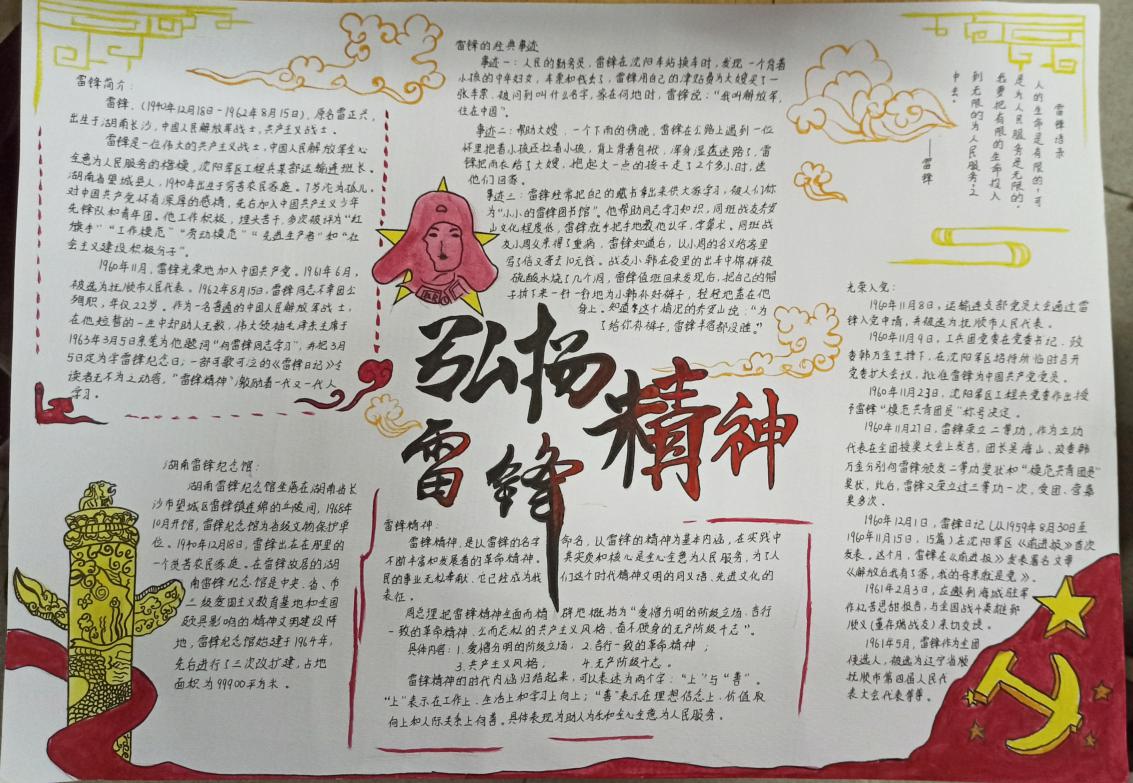 雷锋简介：
雷锋，(1940年12月18日-1962年8月15日)，原名雷正兴，
出生于湖南长沙，中国人民解放军战士，共产主义战士。
雷锋是一位伟大的共产主义战士，中国人民解放军全心
全意为人民服务的楷模，沈阳军区工程兵某部运输连班长。
湖南省望城县人，1940年出生于穷苦农民家庭。7岁沦为孤儿，
对中国共产党怀有深厚的感情，先后加入中国共产主义少年
先锋队和青年团。他工作积极，埋头苦干，多次被评为“红
旗手”“工作模范”“劳动模范”“先进生产者”和“社
会主义建设积极分子”。
1960年11月，雷锋光荣地加入中国共产党。1961年6月，
被选为抚顺市人民代表。1962年8月15日，雷锋同志不幸因公
殉职，年仅22岁。作为一名普通的中国人民解放军战士，
在他短暂的一生中却助人无数，伟大领袖毛泽东主席于
1963年3月5日亲笔为他题词“向雷锋同志学习”，并把3月
5日定为学雷锋纪念日；一部可歌可泣的《雷锋日记》令
读者无不为之动容。“雷锋精神”激励着一代又一代人
学习。
雷锋的经典事迹
事迹一：人民的勤务员，雷锋在沈阳车站换车时，发现一个背着
小孩的中年妇女，车票和钱丢了，雷锋用自己的津贴费为大嫂买了一
张车票，被问到叫什么名字，家在何地时，雷锋说：“我叫解放军，
住在中国”。
事迹二：帮助大嫂，一个下雨的傍晚，雷锋在公路上遇到一位
怀里抱着小孩还拉着小孩，背上背着包袱，浑身湿透迷路了，雷
锋把雨衣给了大嫂，抱起大一点的孩子走了2个多小时，送
他们回家。
事迹三：雷锋经常把自己的藏书拿出来供大家学习，被人们称
为“小小的雷锋图书馆”。他帮助同志学习知识，同班战友乔安
山文化程度低，雷锋就手把手地教他认字、学算术。同班战
友小周父亲得了重病，雷锋知道后，以小周的名义给家里
写了信又寄去10元钱。战友小韩在夜里的出车中棉裤被
硫酸水烧了几个洞，雷锋值班回来发现后，把自己的帽
子拆下来一针一针地为小韩补好裤子，轻轻地盖在他
身上。知道这个情况的乔安山说：“为
了给你补裤子，雷锋半宿都没睡。”
雷锋语录
人的生命是有限的，可
是为人民服务是无限的，
我要把有限的生命投入
到无限的为人民服务之
中去。
——雷锋
弘扬
雷锋
精神
光荣入党：
1960年11月8日，运输连支部党员大会通过雷
锋入党申请，并被选为抚顺市人民代表。
1960年11月9日，工兵团党委在党委书记、政
委韩万金主持下，在沈阳军区招待所临时召开
党委扩大会议，批准雷锋为中国共产党党员。
1960年11月23日，沈阳军区工程兵党委作出授
予雷锋“模范共青团员”称号决定。
1960年11月27日，雷锋荣立二等功，作为立功
代表在全团授奖大会上发言，团长吴海山、政委韩
万金分别向雷锋颁发二等功奖状和“模范共青团员”
奖状，此后，雷锋又荣立过三等功一次，受团、营嘉
奖多次。
1960年12月1日，雷锋日记(从1959年8月30日至
1960年11月15日，15篇)在沈阳军区《前进报》首次
发表。这个月，雷锋在《前进报》发表署名文章
《解放后我有了家，我的母亲就是党》。
1961年2月3日，应邀到海城驻军
作忆苦思甜报告，与全国战斗英雄郅
顺义(董存瑞战友)亲切交谈。
1961年5月，雷锋作为全团
候选人，被选为辽宁省抚
抚顺市第四届人民代
表大会代表等等。
湖南雷锋纪念馆：
湖南雷锋纪念馆坐落在湖南省长
沙市望城区雷锋镇连绵的丘陵间，1968年
10月开馆，雷锋纪念馆为省级文物保护单
位。1940年12月18日，雷锋出生在那里的
一个贫苦农民家庭。在雷锋故居的湖
南雷锋纪念馆是中央、省、市
三级爱国主义教育基地和全国
颇具影响的精神文明建设阵
地，雷锋纪念馆始建于1964年，
先后进行了三次改扩建，占地
面积为99900平方米。
雷锋精神：
雷锋精神，是以雷锋的名字命名，以雷锋的精神为基本内涵，在实践中
不断丰富和发展着的革命精神。其实质和核心是全心全意为人民服务，为了人
民的事业无私奉献，它已经成为我们这个时代精神文明的同义语、先进文化的
表征。
周总理把雷锋精神全面而精辟地概括为“爱憎分明的阶级立场、言行
一致的革命精神、公而忘私的共产主义风格、奋不顾身的无产阶级斗志”。
具体内容：1.爱憎分明的阶级立场；2.言行一致的革命精神；
3.共产主义风格；4.无产阶级斗志。
雷锋精神的时代内涵归结起来，可以表述为两个字：“上”与“善”。
“上”表示在工作上、生活上和学习上向上；“善”表示在理想信念上、价值取
向上和人际关系上向善。具体表现为助人为乐和全心全意为人民服务。